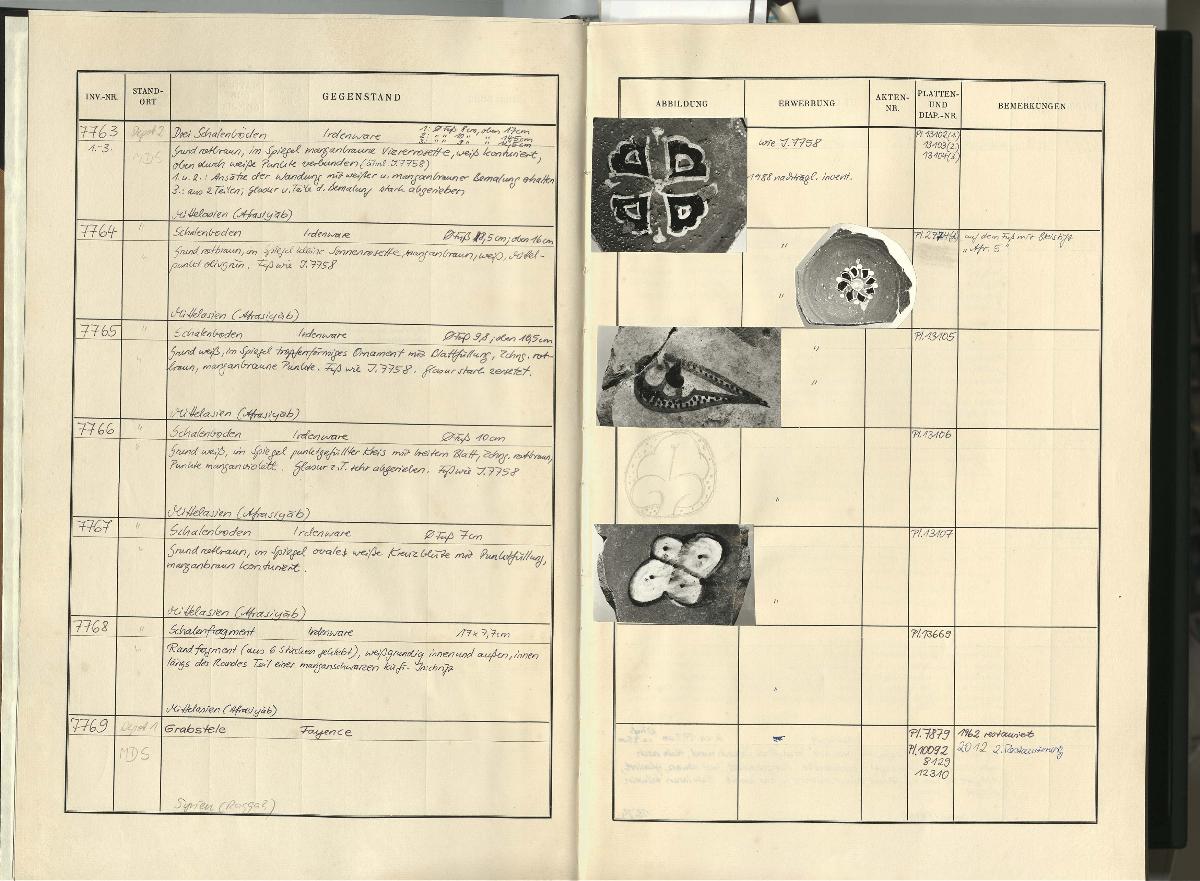 INV.-NR. STAND-ORT GEGENSTAND
7763 Depot 2 Drei Schalenböden Irdenware 1.: Ø Fuß 8cm, oben 17cm
1.-3. MDS Grund rotbraun, im Spiegel manganbraune Viererrosette, weiß konturiert,
oben durch weiße Punkte verbunden (ähnl. I.7758)
1. u. 2.: Ansätze der Wandung mit weißer u. manganbrauner Bemalung erhalten
3.: aus 2 Teilen, Glasur u. Teile d. Bemalung stark abgerieben
Mittelasien (Afrasiyāb)
7764 " Schalenboden Irdenware Ø Fuß 8,5cm; oben 16cm
" Grund rotbraun, im Spiegel kleine Sonnenrosette, manganbraun, weiß, Mittel-
punkt olivgrün. Fuß wie I.7758
Mittelasien (Afrasiyāb)
7765 " Schalenboden Irdenware Ø Fuß 9,8; oben 10,5cm
" Grund weiß, im Spiegel tropfenförmiges Ornament mit Blattfüllung, Zchng. rot-
braun, manganbraune Punkte. Fuß wie I.7758. Glasur stark zersetzt.
Mittelasien (Afrasiyāb)
7766 " Schalenboden Irdenware Ø Fuß 10cm
" Grund weiß, im Spiegel punktgefüllter Kreis mit breitem Blatt, Zchng. rotbraun,
Punkte manganviolett. Glasur z.T. sehr abgerieben. Fuß wie I.7758
Mittelasien (Afrasiyāb)
7767 " Schalenboden Irdenware Ø Fuß 7cm
" Grund rotbraun, im Spiegel ovale weiße Kreuzblüte mit Punktfüllung,
manganbraun konturiert.
Mittelasien (Afrasiyāb)
7768 " Schalenfragment Irdenware 17x7,7cm
" Randfragment (aus 6 Stücken geklebt), weißgrundig innen und außen, innen
längs des Randes Teil einer manganschwarzen kufi-Inschrift
Mittelasien (Afrasiyāb)
7769 Depot 1 Grabstele Fayence
MDS
Syrien (Raqqa?)
ABBILDUNG ERWERBUNG AKTEN-NR. PLATTEN-UND DIAP.-NR. BEMERKUNGEN
wie I.7758 Pl.13102(1.)
13103(2.)
13104(3.)
1988 nachträgl. invent.
" auf dem Fuß mit Bleistift
"Afr. 5"
"
" Pl.13105
"
Pl.13106
"
Pl.13107
"
Pl.13669
"
" Pl.7879 1962 restauriert
Pl.10092 2012 2. Restaurierung
8129
12310